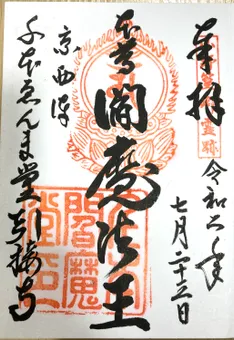 奉拝
霊跡
令和六年
七月二十三日
本尊
閻魔法王
京西陣
千本ゑんま堂
引接寺